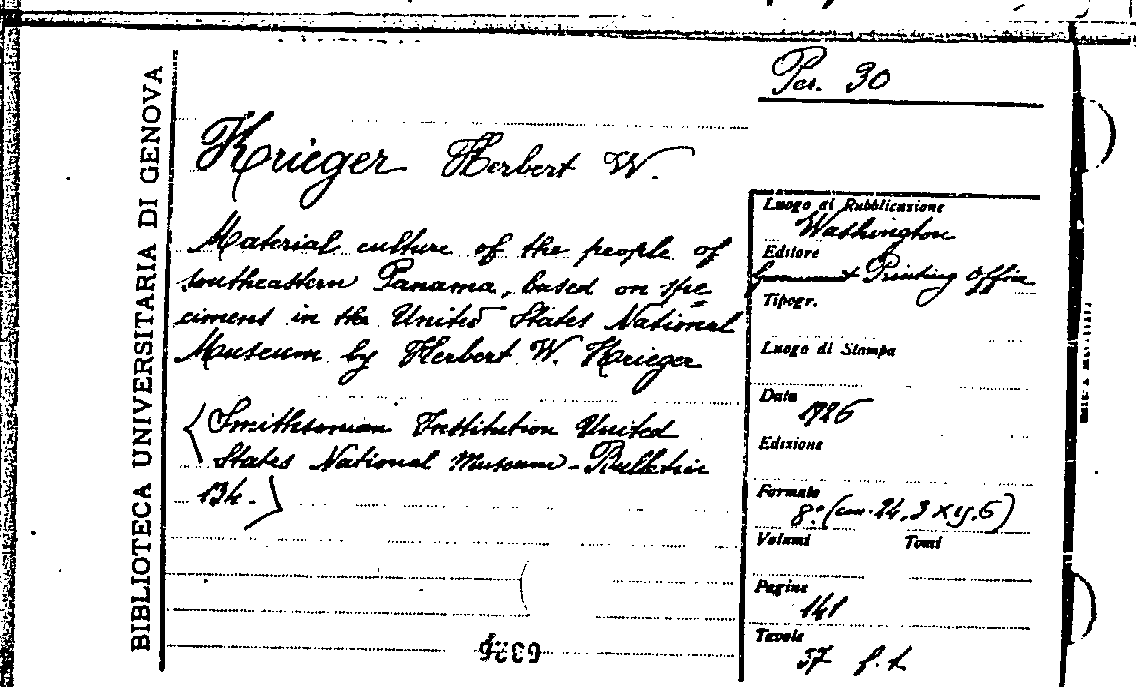 BIBLIOTECA UNIVERSITARIA DI GENOVA
Per. 30
Krieger Herbert W.
Material culture of the people of
southeastern Panama, based on spe
cimens in the United States National
Museum by Herbert W. Krieger
(Smithsonian Institution United
States National Museum - Bulletin
134.)
Luogo di Pubblicazione
Washington
Editore
Government Printing Office
Tipogr.
Luogo di Stampa
Data
1926
Edizione
Formato
8° (cm. 24,3 X 15,5)
Volumi Tomi
Pagine
141
Tavole
37 f. t.